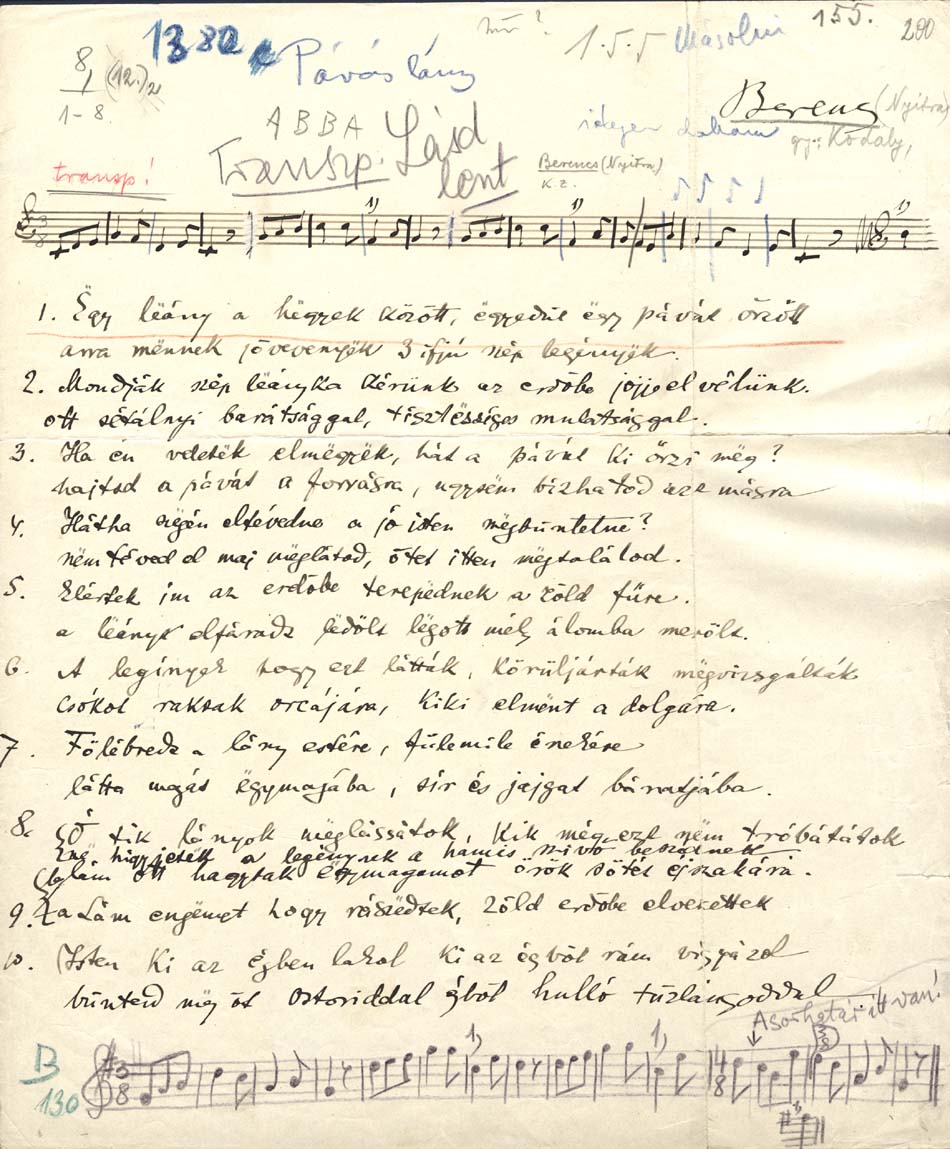 155.
200
1382
Pávás lány
1.5.5 Másolni
8/1-8.
(12.)2
ABBA
Transp. Lásd lent
idegen dallam
Berencs (Nyitra)
gy: Kodály,
Berencs (Nyitra)
K. Z.
transp!
1)
1)
1)
1. Ëgy lëány a hëgyek között, ëgyedül ëgy pávát őrzött
arra mënnek jövevenyëk 3 ifjú szép legényëk.
2. Mondják szép lëányka kérünk az erdőbe jöjj el vélünk.
ott sétálnyi barátsággal, tisztësséges mulatsággal.
3. Ha én veletëk elmëgyëk, hát a pávát ki őrzi mëg?
hajtsd a pávát a forrásra, ugysëm bizhatod azt másra
4. Hátha szëgén eltévedne a jó isten mëgbüntetne?
nëm téved el maj mëglátod, őtet itten mëgtalálod.
5. Elértek im az erdőbe terepednek a zöld fűre.
a lëányk elfáradt ledőlt lëgott mély álomba merőlt.
6. A legények hogy ezt látták, körüljárták mëgvizsgálták
csókot raktak orcájára, kiki elment a dolgára.
7. Fölébredt a lány estére, fülemile énekére
látta magát ëgymagába, sír és jajgat bánatjába.
8. Ó tik lányok mëglássátok, kik még ezt nëm tróbátátok
Ene higyjetëk a legénynek a hamis szivű beszédnek
lám ott hagytak ëgymagamot örök sötét éjszakára.
9. Lám engëmet hogy rászëdtek, zöld erdőbe elvezettek
10. Isten ki az égben lakol ki az égből rám vigyázol
büntesd mëg őt ostoriddal égből hulló tűzlángoddal
A sorhatár itt van!
B
130
1)
1)